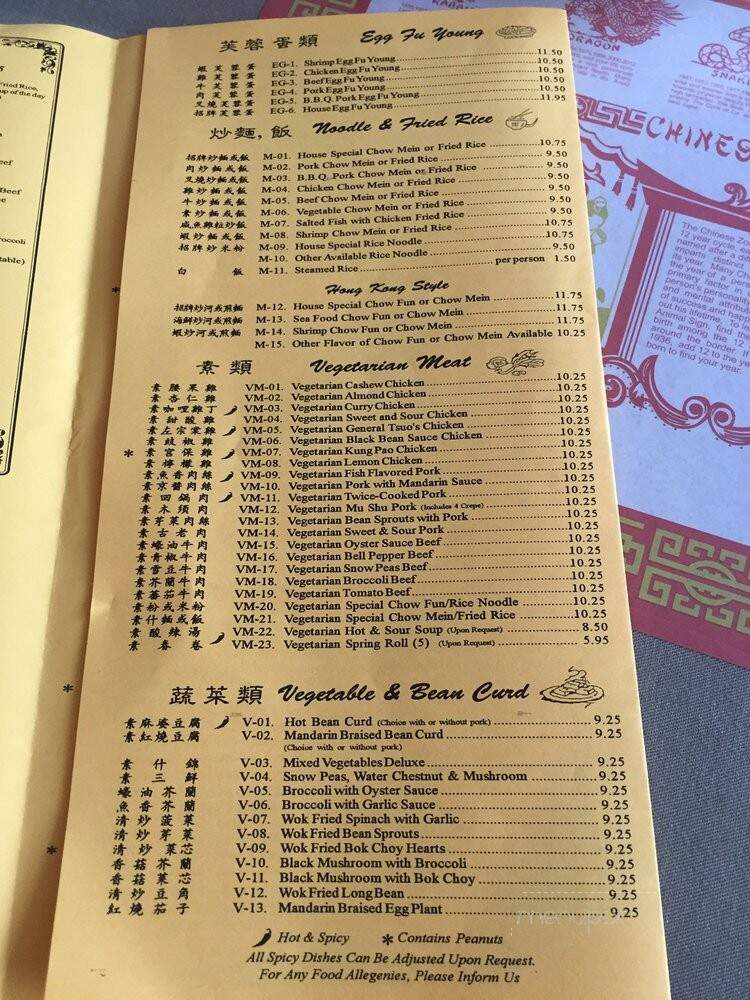 芙蓉蛋類 Egg Fu Young
蝦芙蓉蛋 EG-1. Shrimp Egg Fu Young 11.50
雞芙蓉蛋 EG-2. Chicken Egg Fu Young 10.50
牛芙蓉蛋 EG-3. Beef Egg Fu Young 10.50
肉芙蓉蛋 EG-4. Pork Egg Fu Young 10.50
叉燒芙蓉蛋 EG-5. B.B.Q. Pork Egg Fu Young 10.50
招牌芙蓉蛋 EG-6. House Egg Fu Young 11.95
炒麵, 飯 Noodle & Fried Rice
招牌炒麵或飯 M-01. House Special Chow Mein or Fried Rice 10.75
肉炒麵或飯 M-02. Pork Chow Mein or Fried Rice 9.50
叉燒炒麵或飯 M-03. B.B.Q. Pork Chow Mein or Fried Rice 9.50
雞炒麵或飯 M-04. Chicken Chow Mein or Fried Rice 9.50
牛炒麵或飯 M-05. Beef Chow Mein or Fried Rice 9.50
素炒麵或飯 M-06. Vegetable Chow Mein or Fried Rice 9.50
咸魚雞粒炒飯 M-07. Salted Fish with Chicken Fried Rice 10.75
蝦炒麵或飯 M-08. Shrimp Chow Mein or Fried Rice 10.75
招牌炒米粉 M-09. House Special Rice Noodle 10.75
M-10. Other Available Rice Noodle 9.50
白飯 M-11. Steamed Rice per person 1.50
Hong Kong Style
招牌炒河或煎麵 M-12. House Special Chow Fun or Chow Mein 11.75
海鮮炒河或煎麵 M-13. Sea Food Chow Fun or Chow Mein 11.75
蝦炒河或煎麵 M-14. Shrimp Chow Fun or Chow Mein 11.75
M-15. Other Flavor of Chow Fun or Chow Mein Available 10.25
素類 Vegetarian Meat
素腰果雞 VM-01. Vegetarian Cashew Chicken 10.25
素杏仁雞 VM-02. Vegetarian Almond Chicken 10.25
素咖哩雞丁 VM-03. Vegetarian Curry Chicken 10.25
素甜酸雞 VM-04. Vegetarian Sweet and Sour Chicken 10.25
素左宗棠雞 VM-05. Vegetarian General Tsuo's Chicken 10.25
素豉椒雞 VM-06. Vegetarian Black Bean Sauce Chicken 10.25
* 素宮保雞 VM-07. Vegetarian Kung Pao Chicken 10.25
素檸檬雞 VM-08. Vegetarian Lemon Chicken 10.25
素魚香肉絲 VM-09. Vegetarian Fish Flavored Pork 10.25
素京醬肉絲 VM-10. Vegetarian Pork with Mandarin Sauce 10.25
素回鍋肉 VM-11. Vegetarian Twice-Cooked Pork 10.25
素木須肉 VM-12. Vegetarian Mu Shu Pork (Includes 4 Crepe) 10.25
素芽菜肉絲 VM-13. Vegetarian Bean Sprouts with Pork 10.25
素古老肉 VM-14. Vegetarian Sweet & Sour Pork 10.25
素蠔油牛肉 VM-15. Vegetarian Oyster Sauce Beef 10.25
素青椒牛肉 VM-16. Vegetarian Bell Pepper Beef 10.25
素雪豆牛肉 VM-17. Vegetarian Snow Peas Beef 10.25
素芥蘭牛肉 VM-18. Vegetarian Broccoli Beef 10.25
素蕃茄牛肉 VM-19. Vegetarian Tomato Beef 10.25
素粉或米粉 VM-20. Vegetarian Special Chow Fun/Rice Noodle 10.25
素什麵或飯 VM-21. Vegetarian Special Chow Mein/Fried Rice 10.25
素酸辣湯 VM-22. Vegetarian Hot & Sour Soup (Upon Request) 8.50
素春卷 VM-23. Vegetarian Spring Roll (5) (Upon Request) 5.95
蔬菜類 Vegetable & Bean Curd
素麻婆豆腐 V-01. Hot Bean Curd (Choice with or without pork) 9.25
素紅燒豆腐 V-02. Mandarin Braised Bean Curd 9.25
(Choice with or without pork)
素什錦 V-03. Mixed Vegetables Deluxe 9.25
素三鮮 V-04. Snow Peas, Water Chestnut & Mushroom 9.25
蠔油芥蘭 V-05. Broccoli with Oyster Sauce 9.25
魚香芥蘭 V-06. Broccoli with Garlic Sauce 9.25
清炒菠菜 V-07. Wok Fried Spinach with Garlic 9.25
清炒芽菜 V-08. Wok Fried Bean Sprouts 9.25
清炒菜芯 V-09. Wok Fried Bok Choy Hearts 9.25
香菇芥蘭 V-10. Black Mushroom with Broccoli 9.25
香菇菜芯 V-11. Black Mushroom with Bok Choy 9.25
清炒豆角 V-12. Wok Fried Long Bean 9.25
紅燒茄子 V-13. Mandarin Braised Egg Plant 9.25
Hot & Spicy * Contains Peanuts
All Spicy Dishes Can Be Adjusted Upon Request.
For Any Food Allegenies, Please Inform Us
DRAGON
CHINES
The Chinese Zo
12 year cycle.
named after a